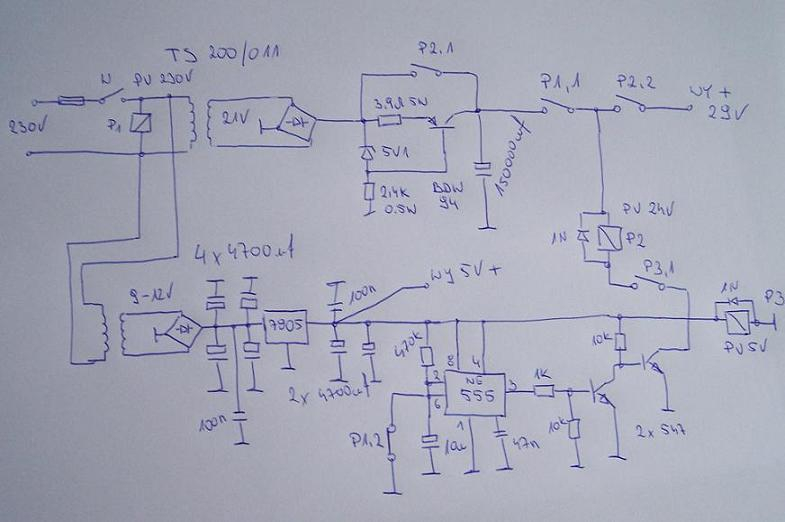 TS 200/011
P2,1
N
PU 230V
P1,1
P2,2
WY +
29V
3.9Ω 5W
230V
P1
21V
5V1
150000uf
2,4K
0.5W
BDW
94
PU 24V
1N
P2
4 x 4700uf
P3,1
1N
9-12V
100n
WY 5V +
P3
7805
PU 5V
470K
10K
2 x 4700uf
8
4
2
NE
555
3
1K
6
100n
P1,2
10u
1
47n
10K
2 x 547